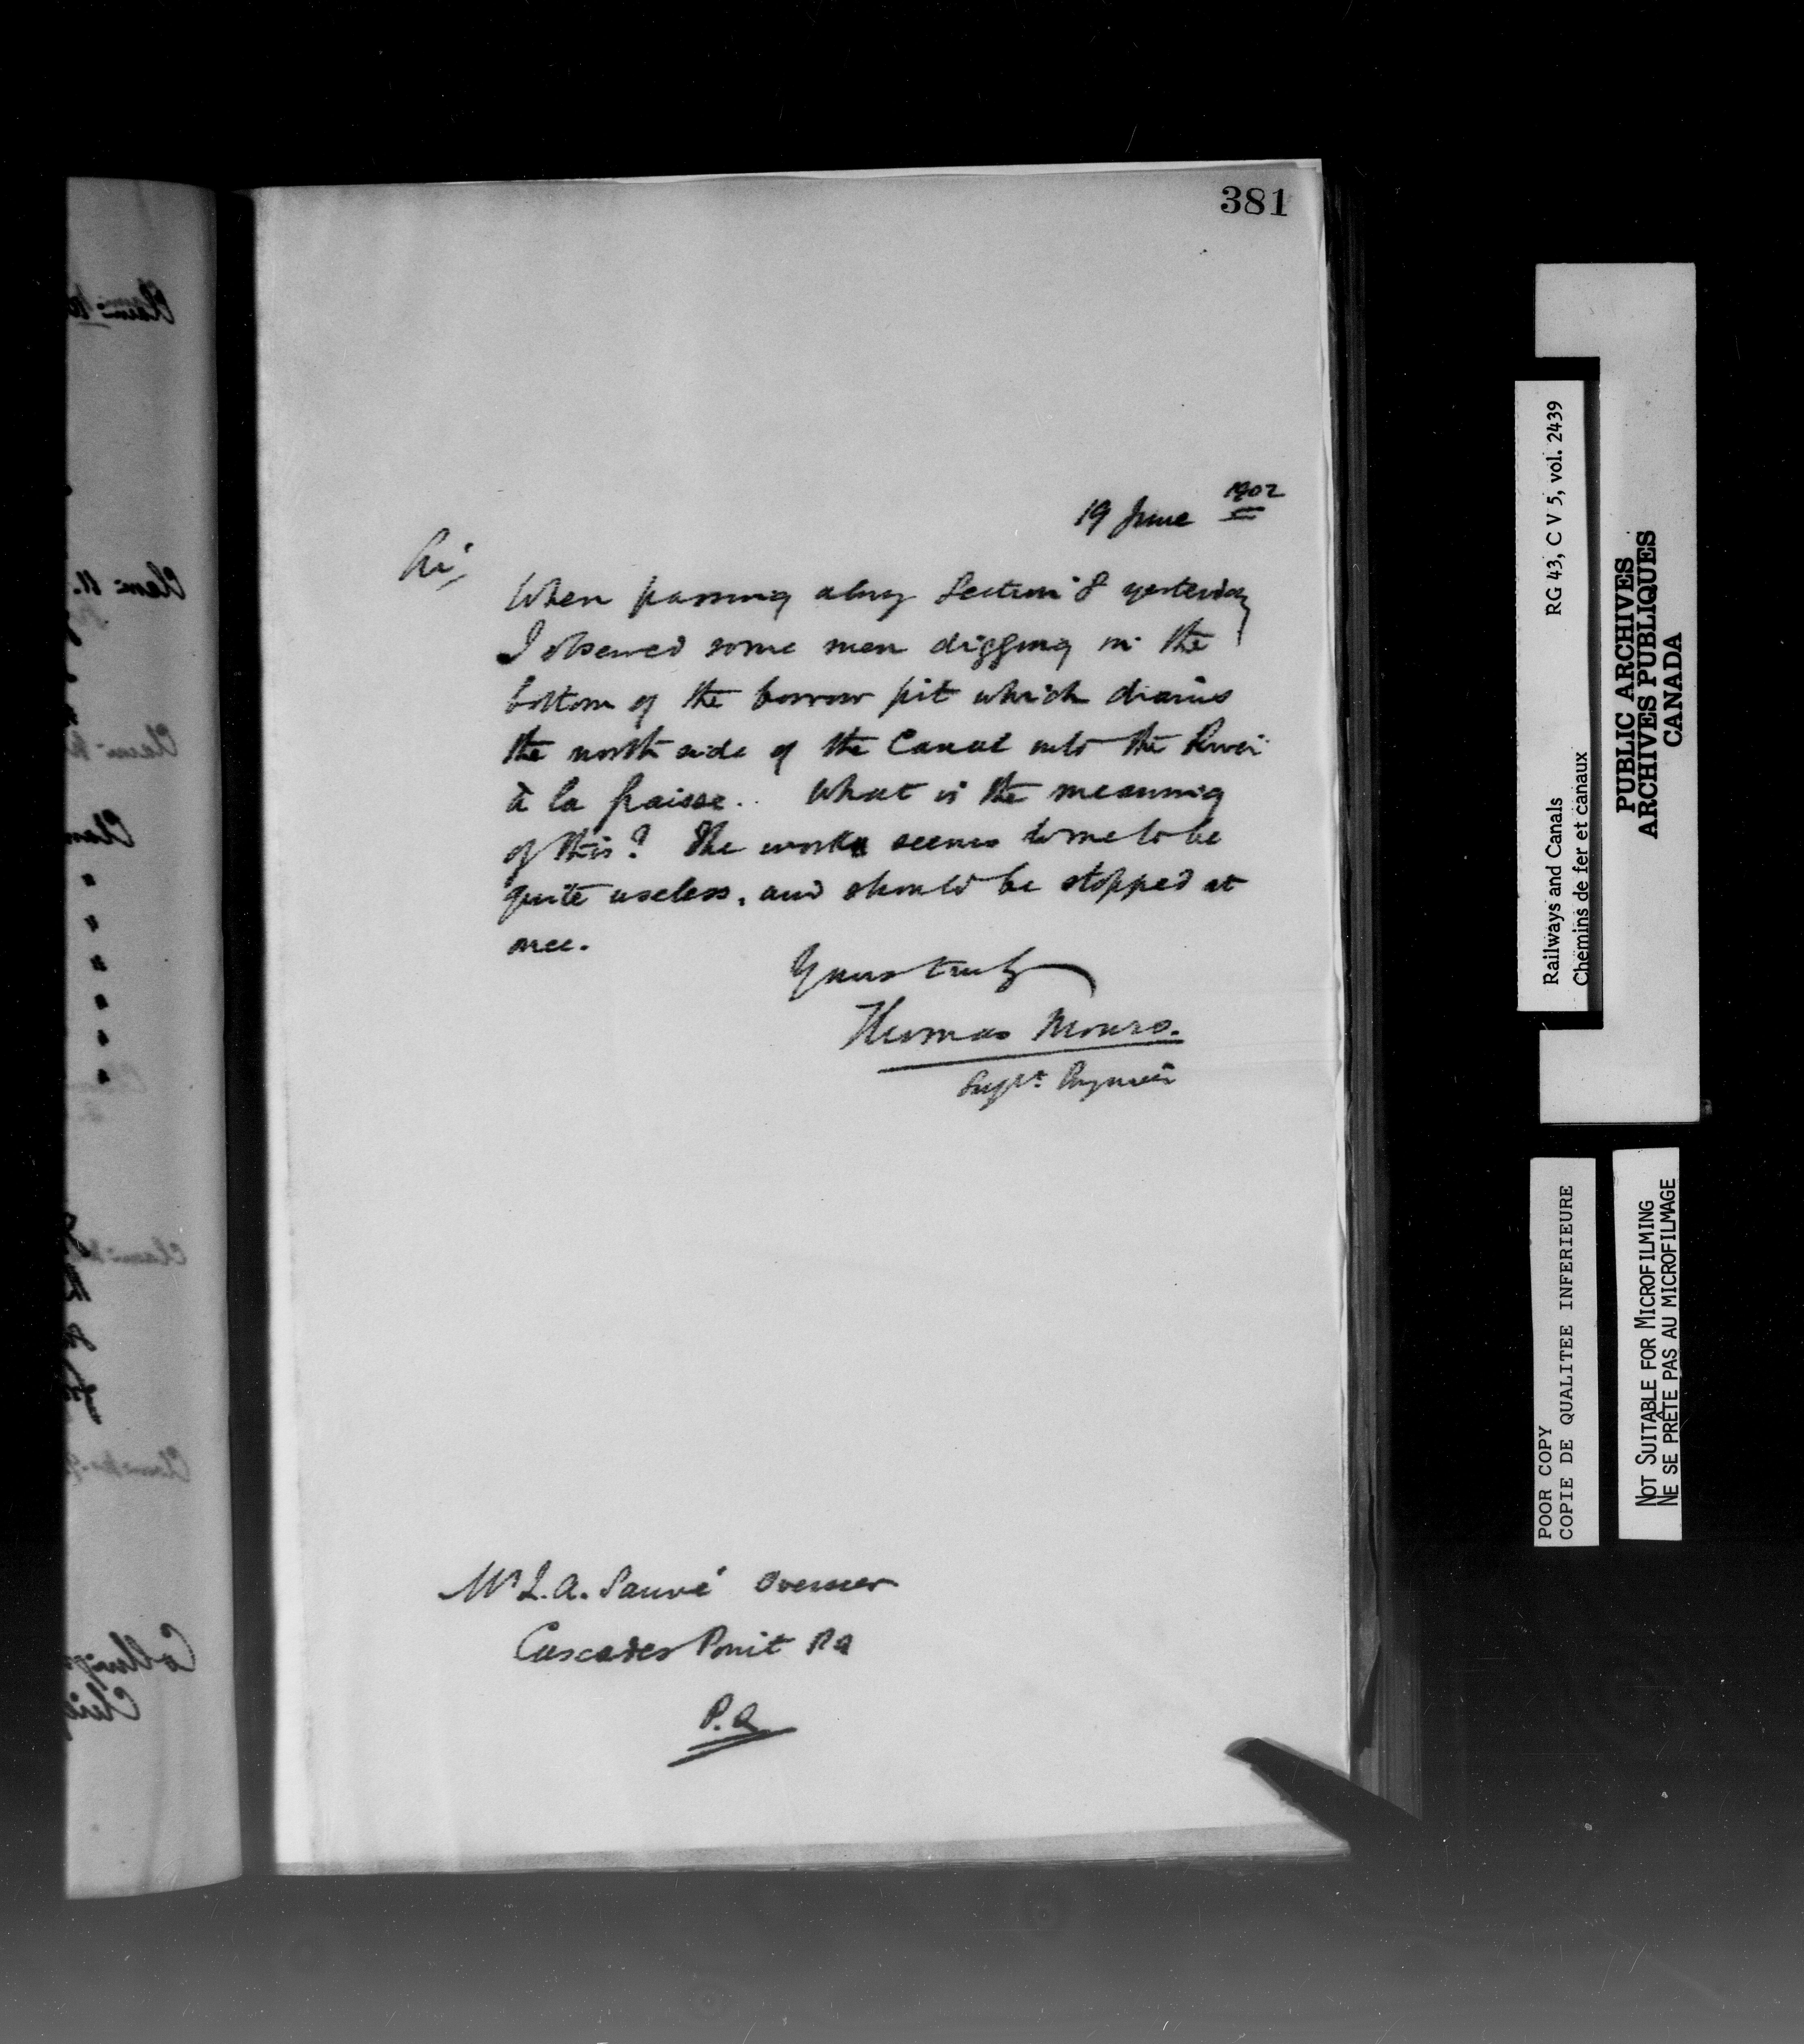 381
19 June 1902
Sir,
When passing along Section 8 yesterday
I observed some men digging in the
bottom of the borrow pit which drains
the north side of the Canal into the River
à la Graisse. What is the meaning
of this? The work seems to me to be
quite useless, and should be stopped at
once.
Yours truly
Thomas Monro.
Supt. Engineer
Mr L. A. Sauvé Overseer
Cascades Point PQ
P.Q
Railways and Canals RG 43, C V 5, vol. 2439
Chemins de fer et canaux
PUBLIC ARCHIVES
ARCHIVES PUBLIQUES
CANADA
POOR COPY
COPIE DE QUALITEE INFERIEURE
NOT SUITABLE FOR MICROFILMING
NE SE PRÊTE PAS AU MICROFILMAGE